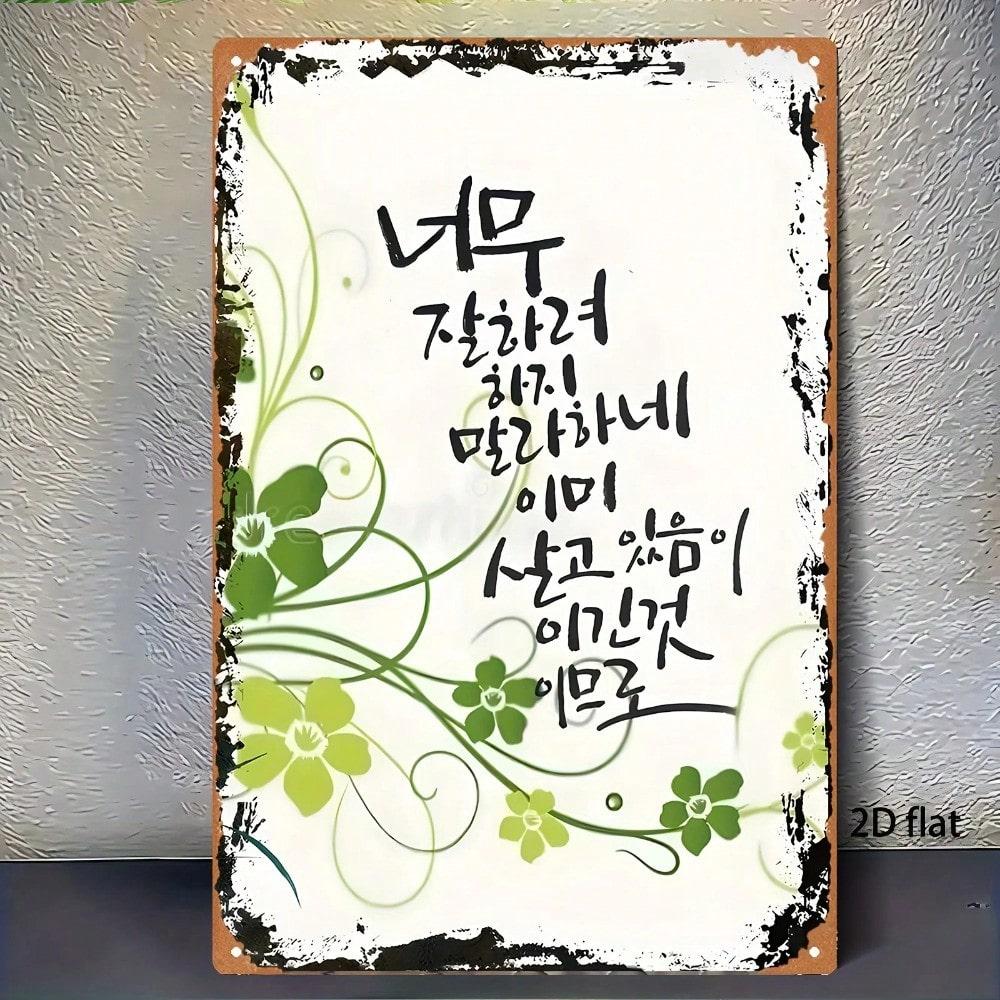 너무
잘하려
하지
말라하네
이미
살고 있음이
이긴것
이므로
2D flat